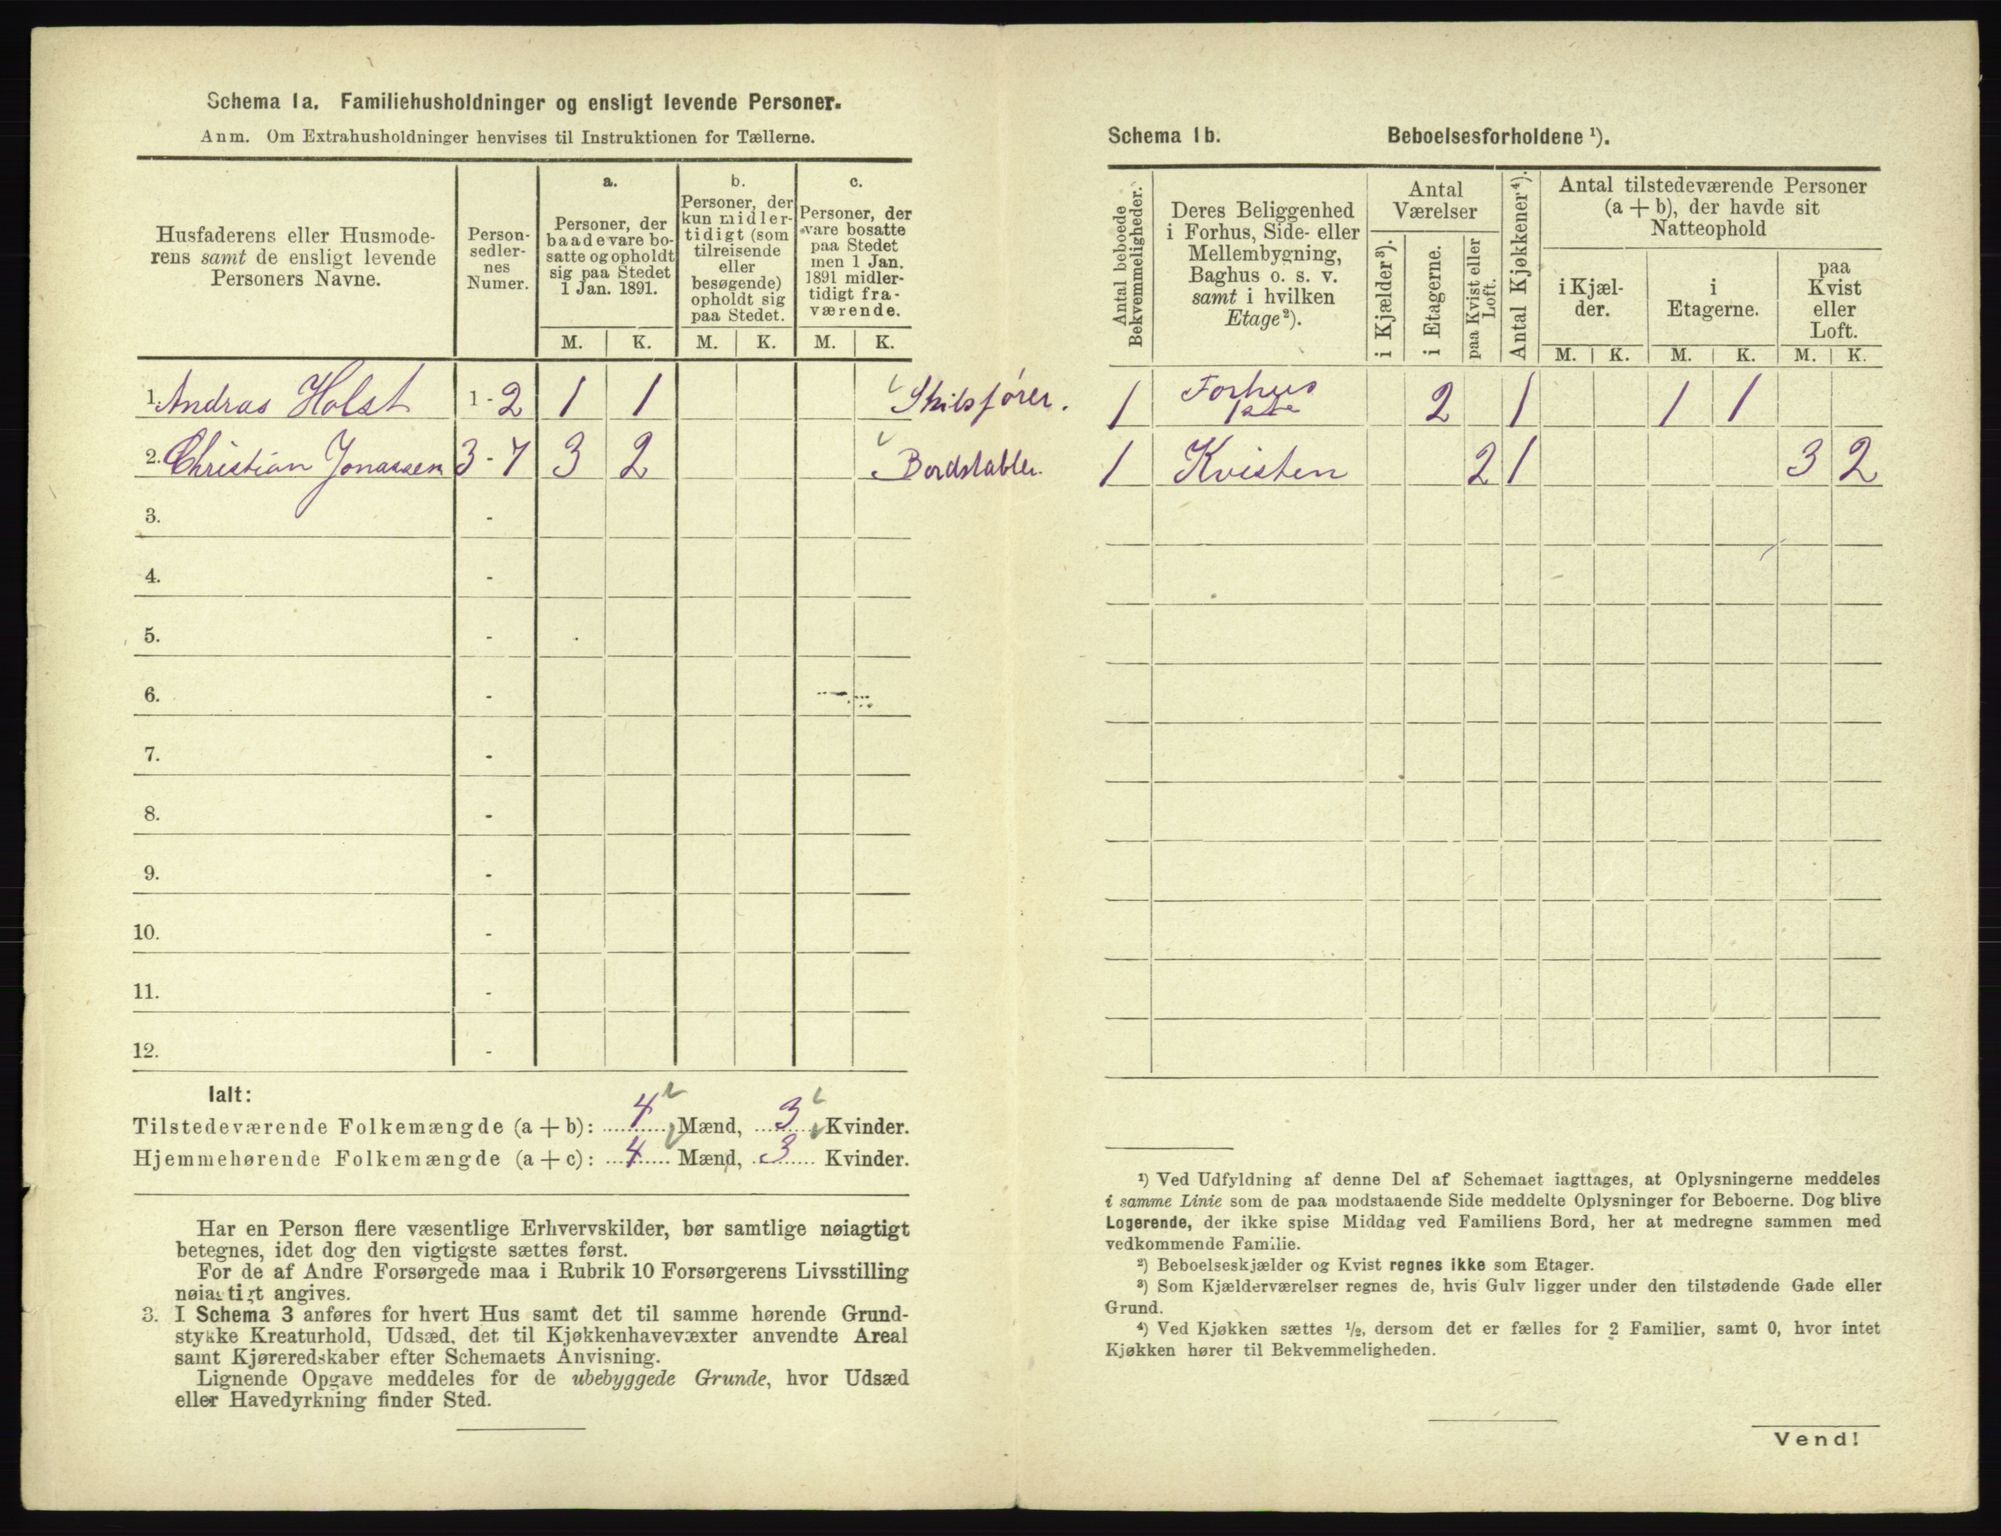 Schema 1a. Familiehusholdninger og ensligt levende Personer.
Anm. Om Extrahusholdninger henvises til Instruktionen for Tællerne.
Husfaderens eller Husmode-
rens samt de ensligt levende
Personers Navne.
Person-
sedler-
nes
Numer.
a.
Personer, der
baade vare bo-
satte og opholdt
sig paa Stedet
1 Jan. 1891.
b.
Personer, der
kun midler-
tidigt (som
tilreisende
eller
besøgende)
opholdt sig
paa Stedet.
c.
Personer, der
vare bosatte
paa Stedet
men 1 Jan.
1891 midler-
tidigt fra-
værende.
M. K. M. K. M. K.
1. Andras Holst 1-2 1 1 Skibsfører.
2. Christian Jonassen 3-7 3 2 Bordstabler.
3. -
4. -
5. -
6. -
7. -
8. -
9. -
10. -
11. -
12. -
Ialt:
Tilstedeværende Folkemængde (a + b): 4 Mænd, 3 Kvinder.
Hjemmehørende Folkemængde (a + c): 4 Mænd, 3 Kvinder.
Har en Person flere væsentlige Erhvervskilder, bør samtlige nøiagtigt
betegnes, idet dog den vigtigste sættes først.
For de af Andre Forsørgede maa i Rubrik 10 Forsørgerens Livsstilling
nøiagtigt angives.
3. I Schema 3 anføres for hvert Hus samt det til samme hørende Grund-
stykke Kreaturhold, Udsæd, det til Kjøkkenhavevæxter anvendte Areal
samt Kjøreredskaber efter Schemaets Anvisning.
Lignende Opgave meddeles for de ubebyggede Grunde, hvor Udsæd
eller Havedyrkning finder Sted.
Schema 1b. Beboelsesforholdene ¹).
Antal beboede
Bekvemmeligheder.
Deres Beliggenhed
i Forhus, Side- eller
Mellembygning,
Baghus o. s. v.
samt i hvilken
Etage²).
Antal
Værelser
i Kjælder³).
i Etagerne.
paa Kvist eller
Loft.
Antal Kjøkkener⁴).
Antal tilstedeværende Personer
(a + b), der havde sit
Natteophold
i Kjæl-
der.
i
Etagerne.
paa
Kvist
eller
Loft.
M. K. M. K. M. K.
1 Forhus 1ste 2 1 1 1
1 Kvisten 2 1 3 2
¹) Ved Udfyldning af denne Del af Schemaet iagttages, at Oplysningerne meddeles
i samme Linie som de paa modstaaende Side meddelte Oplysninger for Beboerne. Dog blive
Logerende, der ikke spise Middag ved Familiens Bord, her at medregne sammen med
vedkommende Familie.
²) Beboelseskjælder og Kvist regnes ikke som Etager.
³) Som Kjælderværelser regnes de, hvis Gulv ligger under den tilstødende Gade eller
Grund.
⁴) Ved Kjøkken sættes ½, dersom det er fælles for 2 Familier, samt 0, hvor intet
Kjøkken hører til Bekvemmeligheden.
Vend!